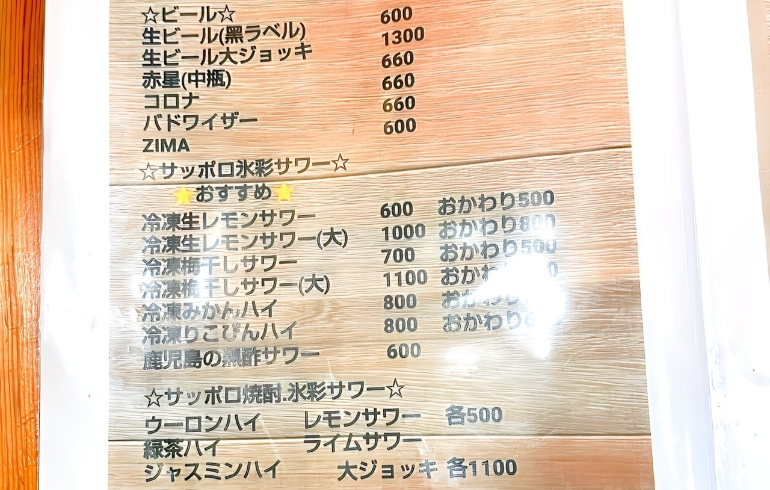 ☆ビール☆
生ビール(黒ラベル) 600
生ビール大ジョッキ 1300
赤星(中瓶) 660
コロナ 660
バドワイザー 660
ZIMA 600
☆サッポロ氷彩サワー☆
⭐おすすめ⭐
冷凍生レモンサワー 600 おかわり500
冷凍生レモンサワー(大) 1000 おかわり800
冷凍梅干しサワー 700 おかわり500
冷凍梅干しサワー(大) 1100 おかわ
冷凍みかんハイ 800 おかわ
冷凍りこぴんハイ 800 おかわり
鹿児島の黒酢サワー 600
☆サッポロ焼酎.氷彩サワー☆
ウーロンハイ レモンサワー 各500
緑茶ハイ ライムサワー
ジャスミンハイ 大ジョッキ 各1100